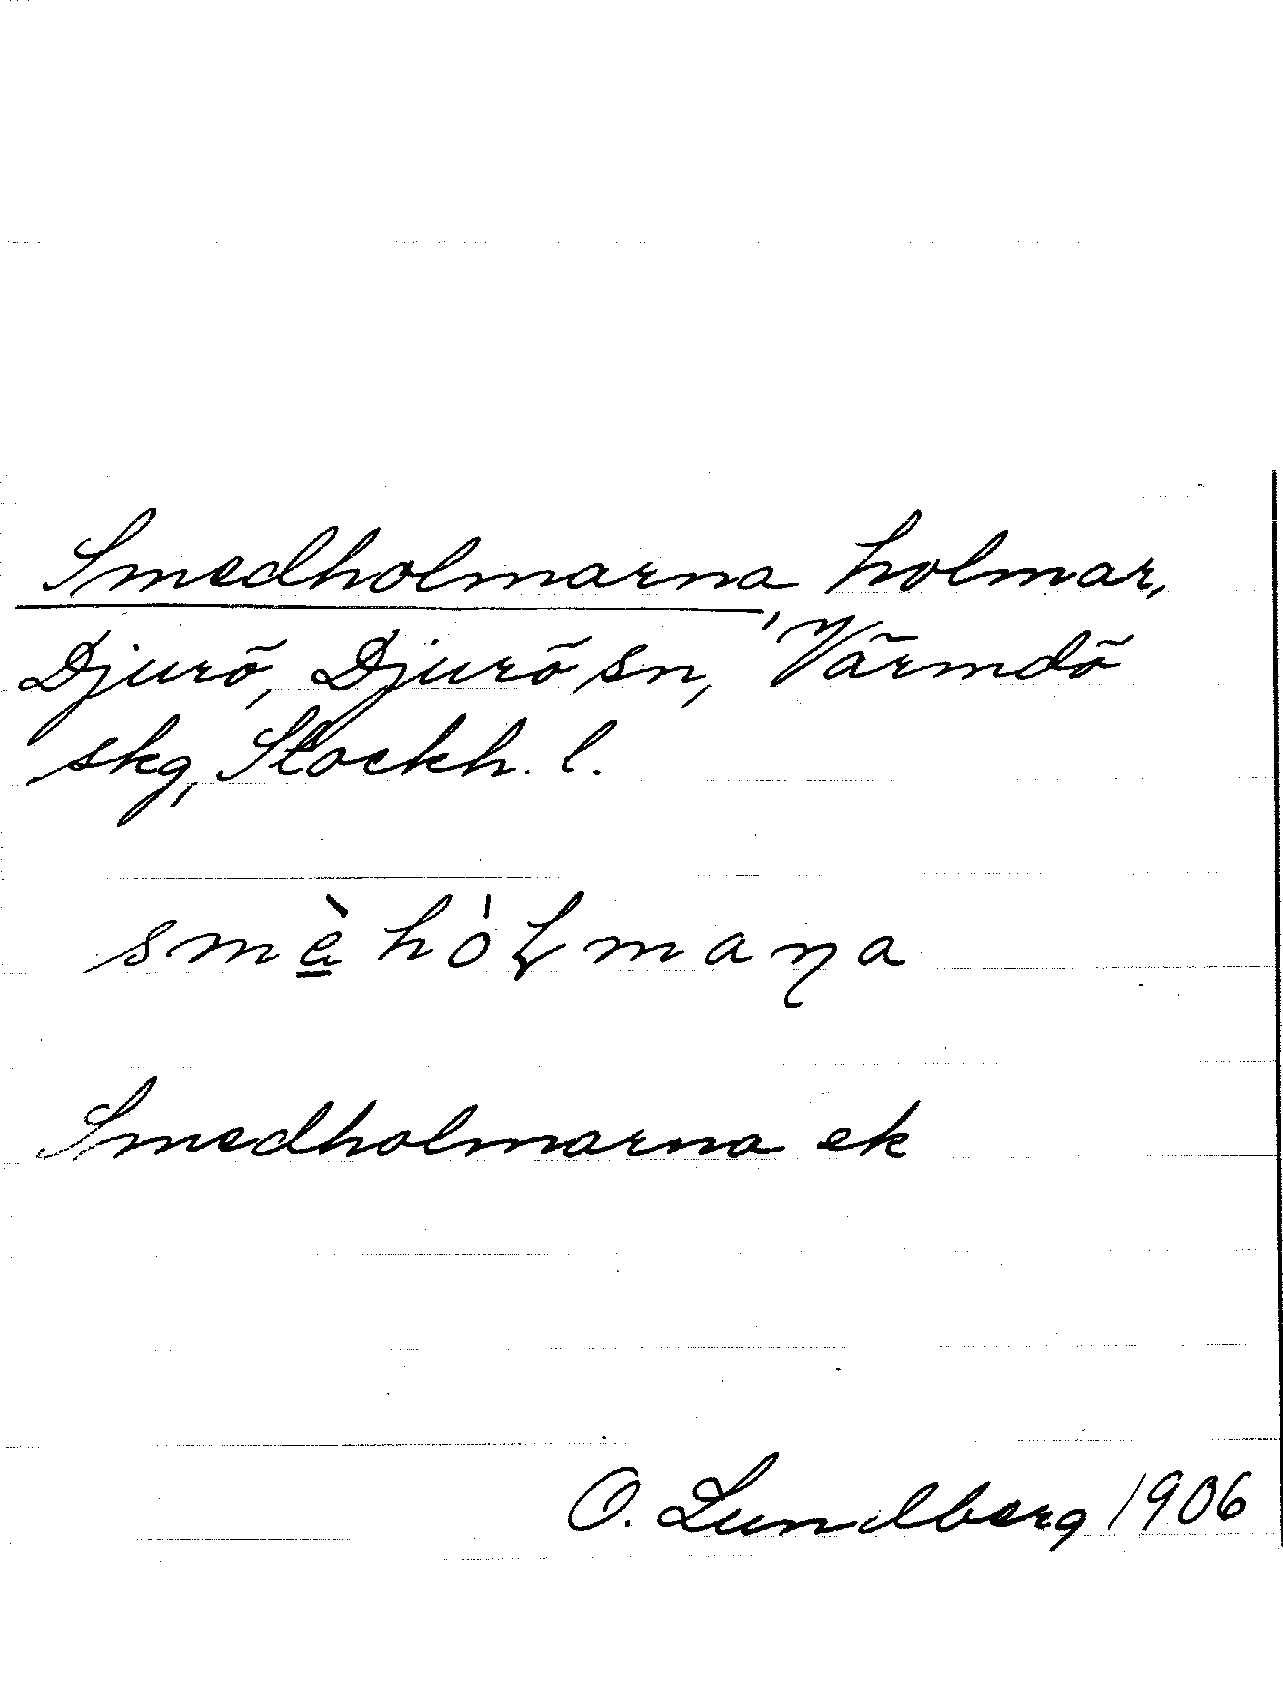 Smedholmarna, holmar,
Djurö, Djurö sn, Värmdö
skg, Stockh. l.
smè̱hόɽmaɳa
Smedholmarna ek
O. Lundberg 1906